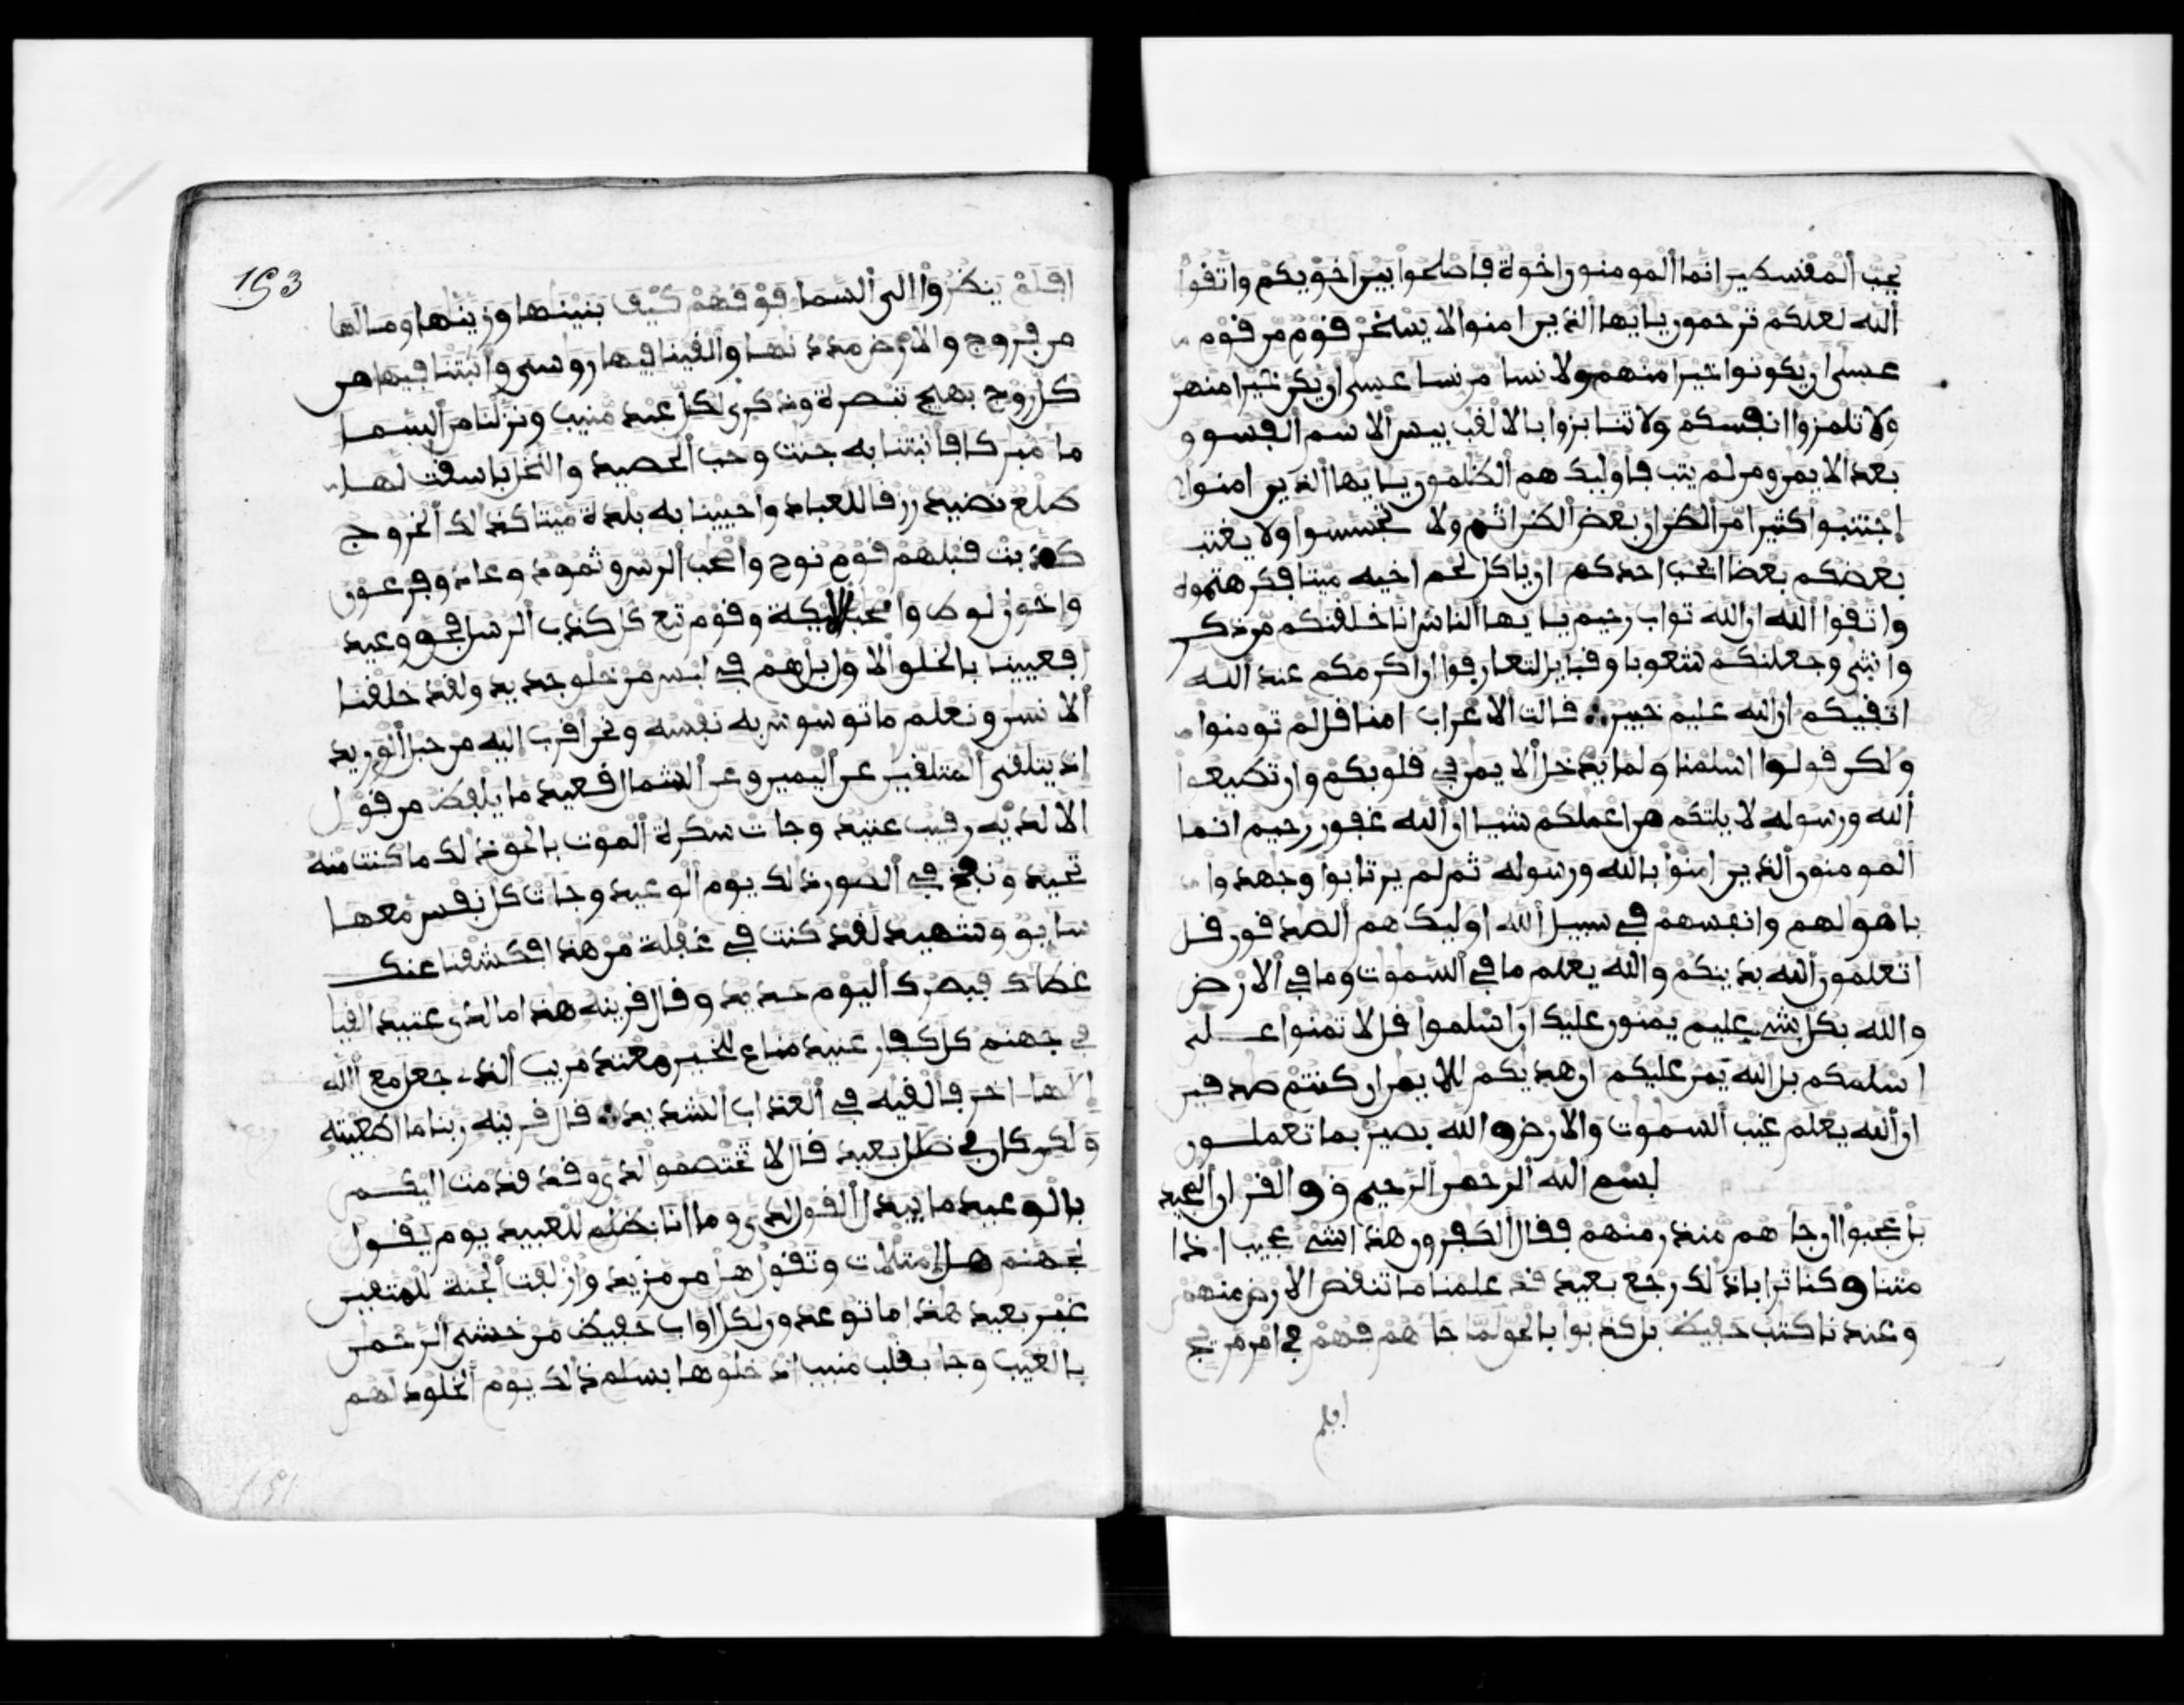 يحب المقسطين انما المومنون اخوة فاصلحوا بين اخويكم واتقوا
الله لعلكم ترحمون يايها الذين امنوا لا يسخر قوم من قوم
عسى ان يكونوا خيرا منهم ولا نسا من نسا عسى ان يكن خيرا منهن
ولا تلمزوا انفسكم ولا تنابزوا بالالقب بيس الاسم الفسوق
بعد الايمن ومن لم يتب فاوليك هم الظلمون يايها الذين امنوا
اجتنبوا كثيرا من الظن ان بعض الظن اثم ولا تجسسوا ولا يغتب
بعضكم بعضا ايحب احدكم ان ياكل لحم اخيه ميتا فكرهتموه
واتقوا الله ان الله تواب رحيم يايها الناس انا خلقنكم من ذكر
وانثى وجعلنكم شعوبا وقبايل لتعارفوا ان اكرمكم عند الله
اتقيكم ان الله عليم خبير قالت الاعراب امنا قل لم تومنوا
ولكن قولوا اسلمنا ولما يدخل الايمن في قلوبكم وان تطيعوا
الله ورسوله لا يلتكم من اعملكم شيا ان الله غفور رحيم انما
المومنون الذين امنوا بالله ورسوله ثم لم يرتابوا وجهدوا
باموالهم وانفسهم في سبيل الله اوليك هم الصدقون قل
اتعلمون الله بدينكم والله يعلم ما في السموت وما في الارض
والله بكل شي عليم يمنون عليك ان اسلموا قل لا تمنوا على
اسلمكم بل الله يمن عليكم ان هديكم للايمن ان كنتم صدقين
ان الله يعلم غيب السموت والارض والله بصير بما تعملون
بسم الله الرحمن الرحيم ق والقران المجيد
بل عجبوا ان جاهم منذر منهم فقال الكفرون هذا شي عجيب اذا
متنا وكنا ترابا ذلك رجع بعيد قد علمنا ما تنقص الارض منهم
وعندنا كتب حفيظ بل كذبوا بالحق لما جاهم فهم في امر مريج
افلم
193
افلم ينظروا الى السما فوقهم كيف بنينها وزينها وما لها
من فروج والارض مددنها والقينا فيها روسي وانبتنا فيها من
كل زوج بهيج تبصرة وذكرى لكل عبد منيب ونزلنا من السما
ما مبركا فانبتنا به جنت وحب الحصيد والنخل باسقت لها
طلع نضيد رزقا للعباد واحيينا به بلدة ميتا كذلك الخروج
كذبت قبلهم قوم نوح واصحب الرس وثمود وعاد وفرعون
واخون لوط واصحب الايكة وقوم تبع كل كذب الرسل فحق وعيد
افعيينا بالخلق الاول بل هم في لبس من خلق جديد ولقد خلقنا
الانسن ونعلم ما توسوس به نفسه ونحن اقرب اليه من حبل الوريد
اذ يتلقى المتلقين عن اليمين وعن الشمال قعيد ما يلفظ من قول
الا لديه رقيب عتيد وجات سكرة الموت بالحق ذلك ما كنت منه
تحيد ونفخ في الصور ذلك يوم الوعيد وجات كل نفس معها
سايق وشهيد لقد كنت في غفلة من هذا فكشفنا عنك
غطاك فبصرك اليوم حديد وقال قرينه هذا ما لدي عتيد القيا
في جهنم كل كفار عنيد مناع للخير معتد مريب الذي جعل مع الله
الها اخر فالقيه في العذاب الشديد قال قرينه ربنا ما اطغيته
ولكن كان في ضلل بعيد قال لا تختصموا لدي وقد قدمت اليكم
بالوعيد ما يبدل القول لدي وما انا بظلم للعبيد يوم يقول
لجهنم هل امتلات وتقول هل من مزيد وازلفت الجنة للمتقين
غير بعيد هذا ما توعدون لكل اواب حفيظ من خشي الرحمن
بالغيب وجا بقلب منيب ادخلوها بسلم ذلك يوم الخلود لهم